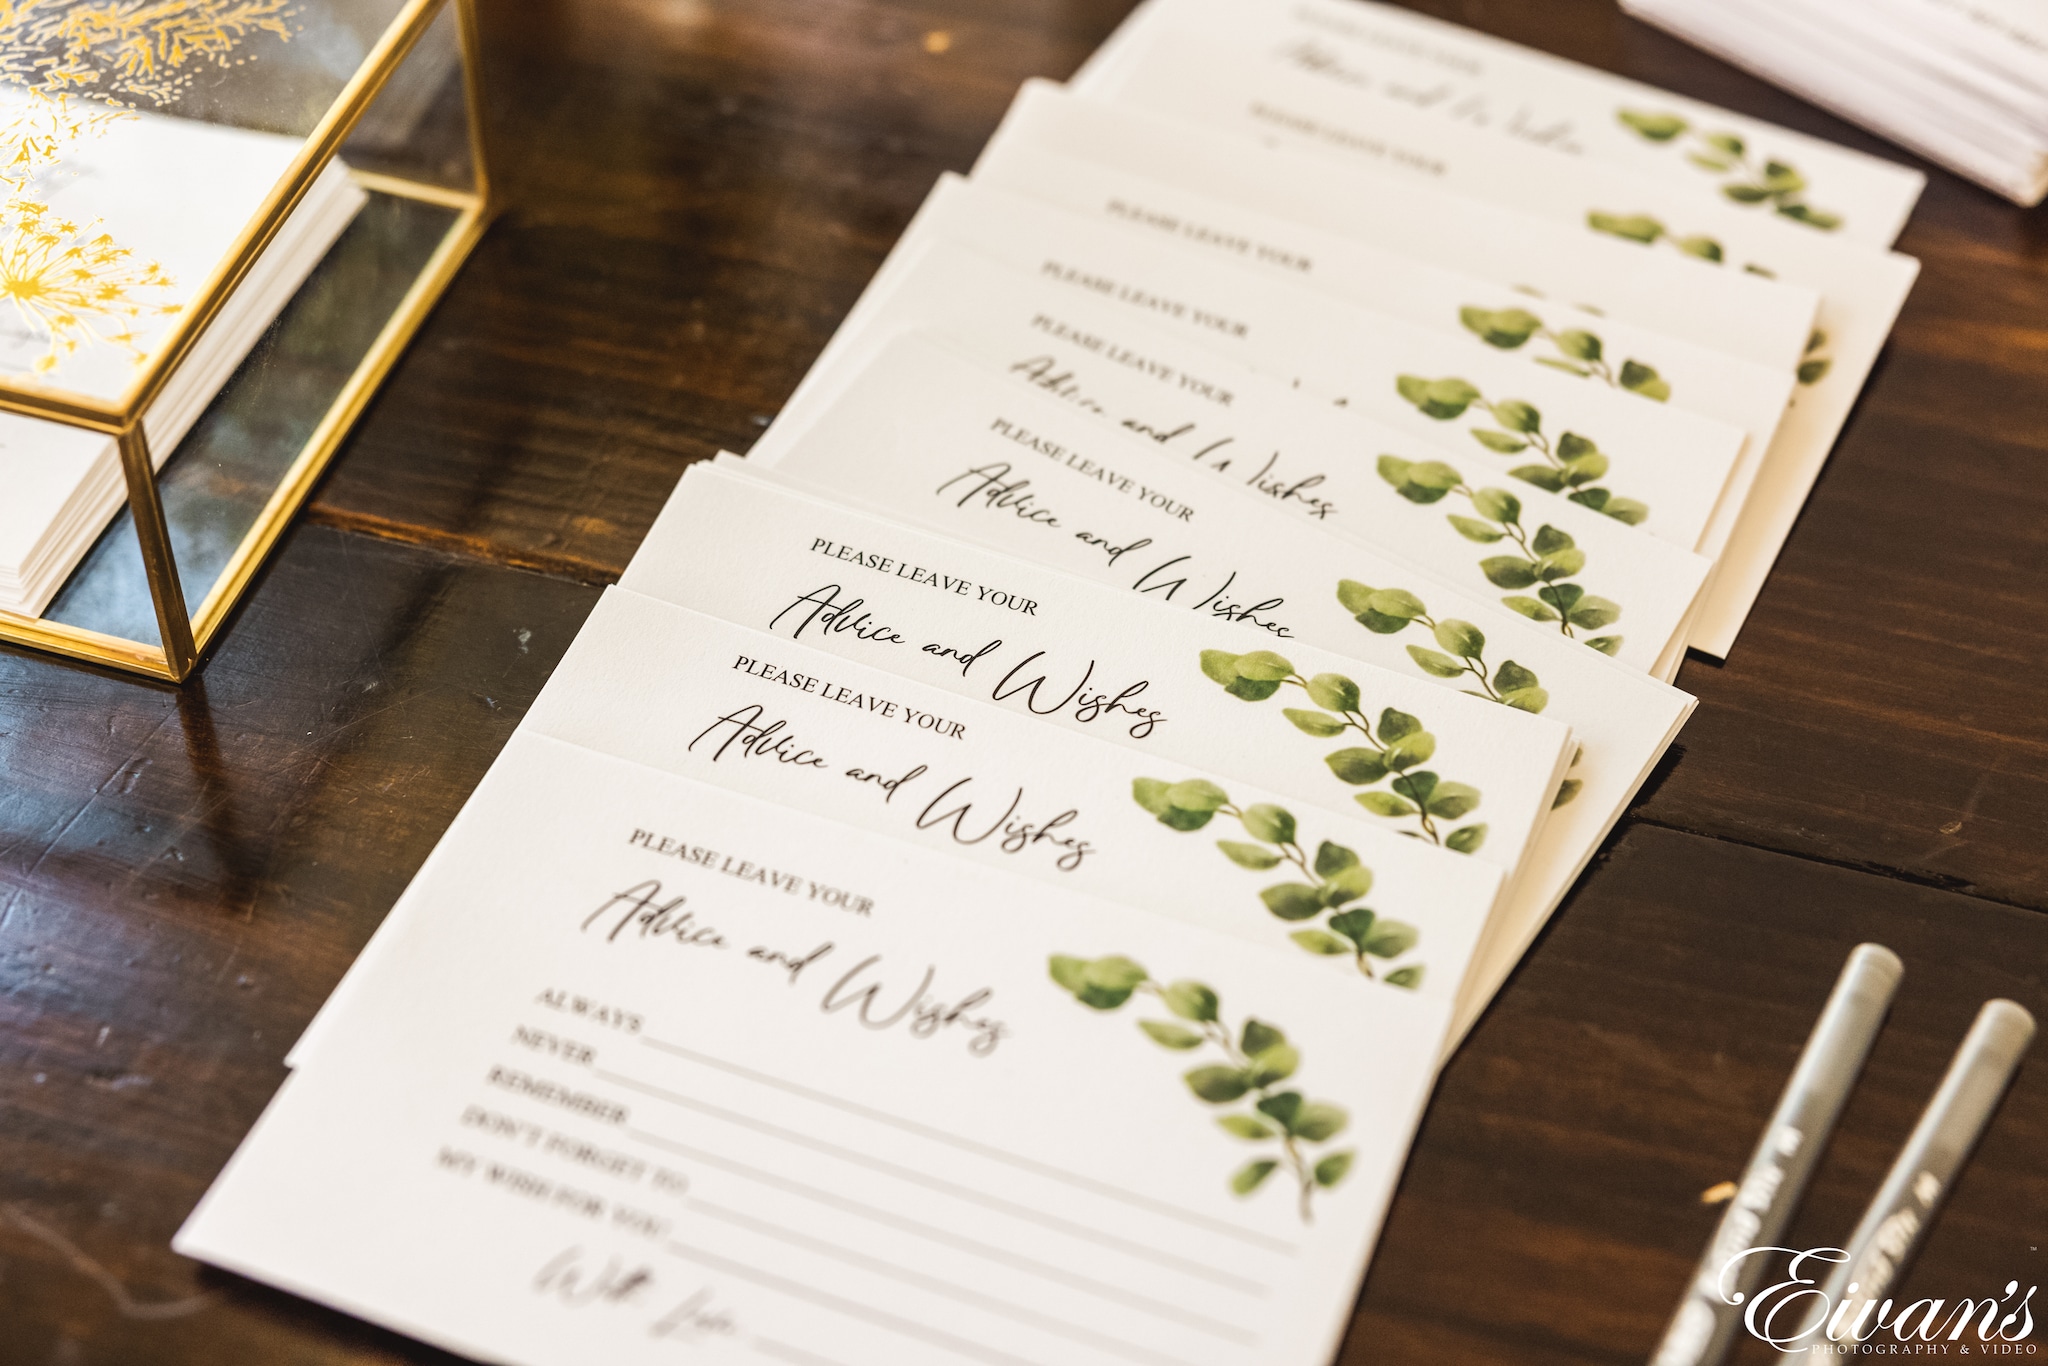 Advice and Wishes
PLEASE LEAVE YOUR
PLEASE LEAVE YOUR
PLEASE LEAVE YOUR
PLEASE LEAVE YOUR
Advice and Wishes
PLEASE LEAVE YOUR
Advice and Wishes
PLEASE LEAVE YOUR
Advice and Wishes
PLEASE LEAVE YOUR
Advice and Wishes
PLEASE LEAVE YOUR
Advice and Wishes
ALWAYS
NEVER
REMEMBER
DON'T FORGET TO
MY WISH FOR YOU
With Love
Eivan's
PHOTOGRAPHY & VIDEO
™